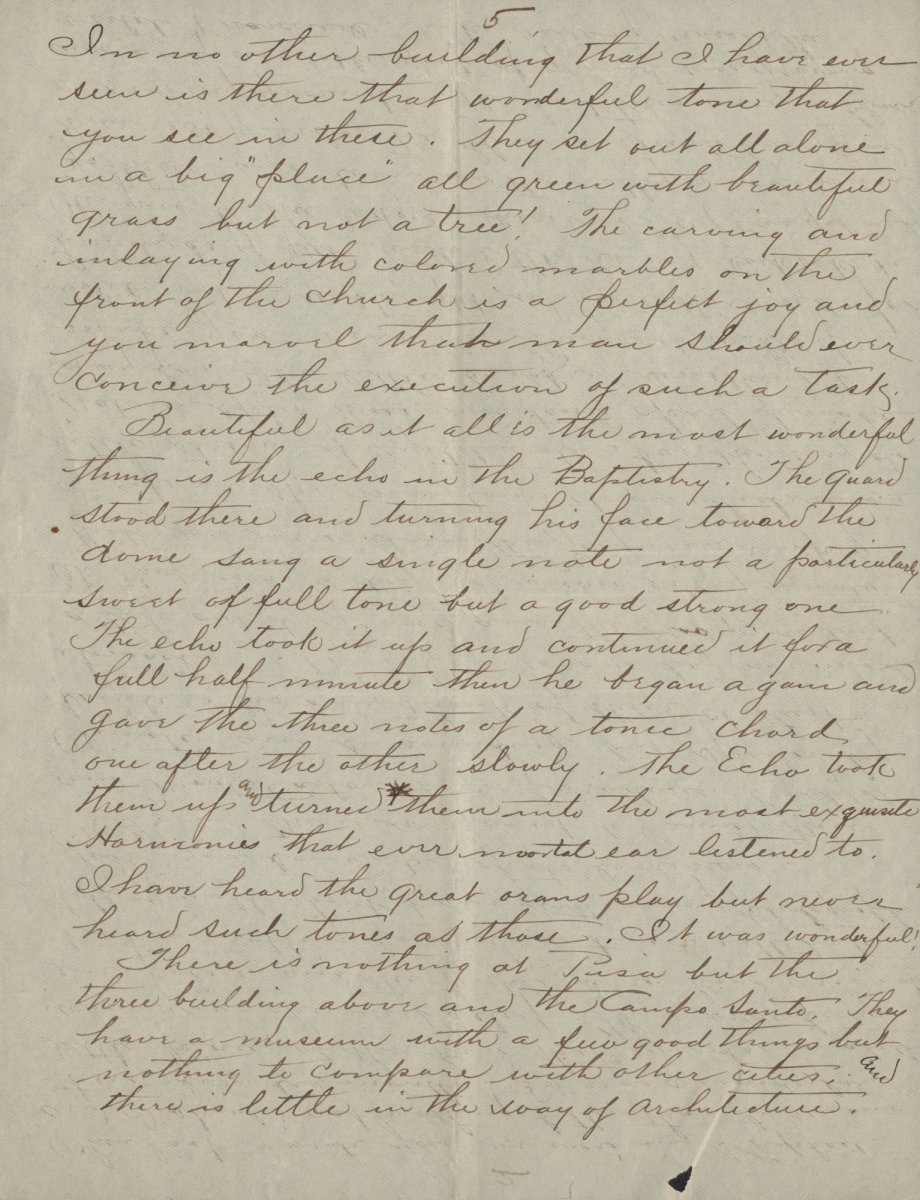 5
In no other building that I have ever
seen is there that wonderful tone that
you see in these. They set out all alone
in a big "place" all green with beautiful
grass but not a tree! The carving and
inlaying with colored marbles on the
front of the church is a perfect joy and
you marvel that man should ever
conceive the execution of such a task.
Beautiful as it all is the most wonderful
thing is the echo in the Baptistry. The guard
stood there and turning his face toward the
dome sang a single note not a particularly
sweet of full tone but a good strong one
The echo took it up and continued it for a
full half minute then he began again and
gave the three notes of a tonic chord
one after the other slowly. The Echo took
them up and turned them into the most exquisite
Harmonies that ever mortal ear listened to.
I have heard the great orans play but never
heard such tones as those. It was wonderful!
There is nothing at Pisa but the
three building above and the Campo Santo. They
have a museum with a few good things but
nothing to compare with other cities; and
there is little in the way of architecture.